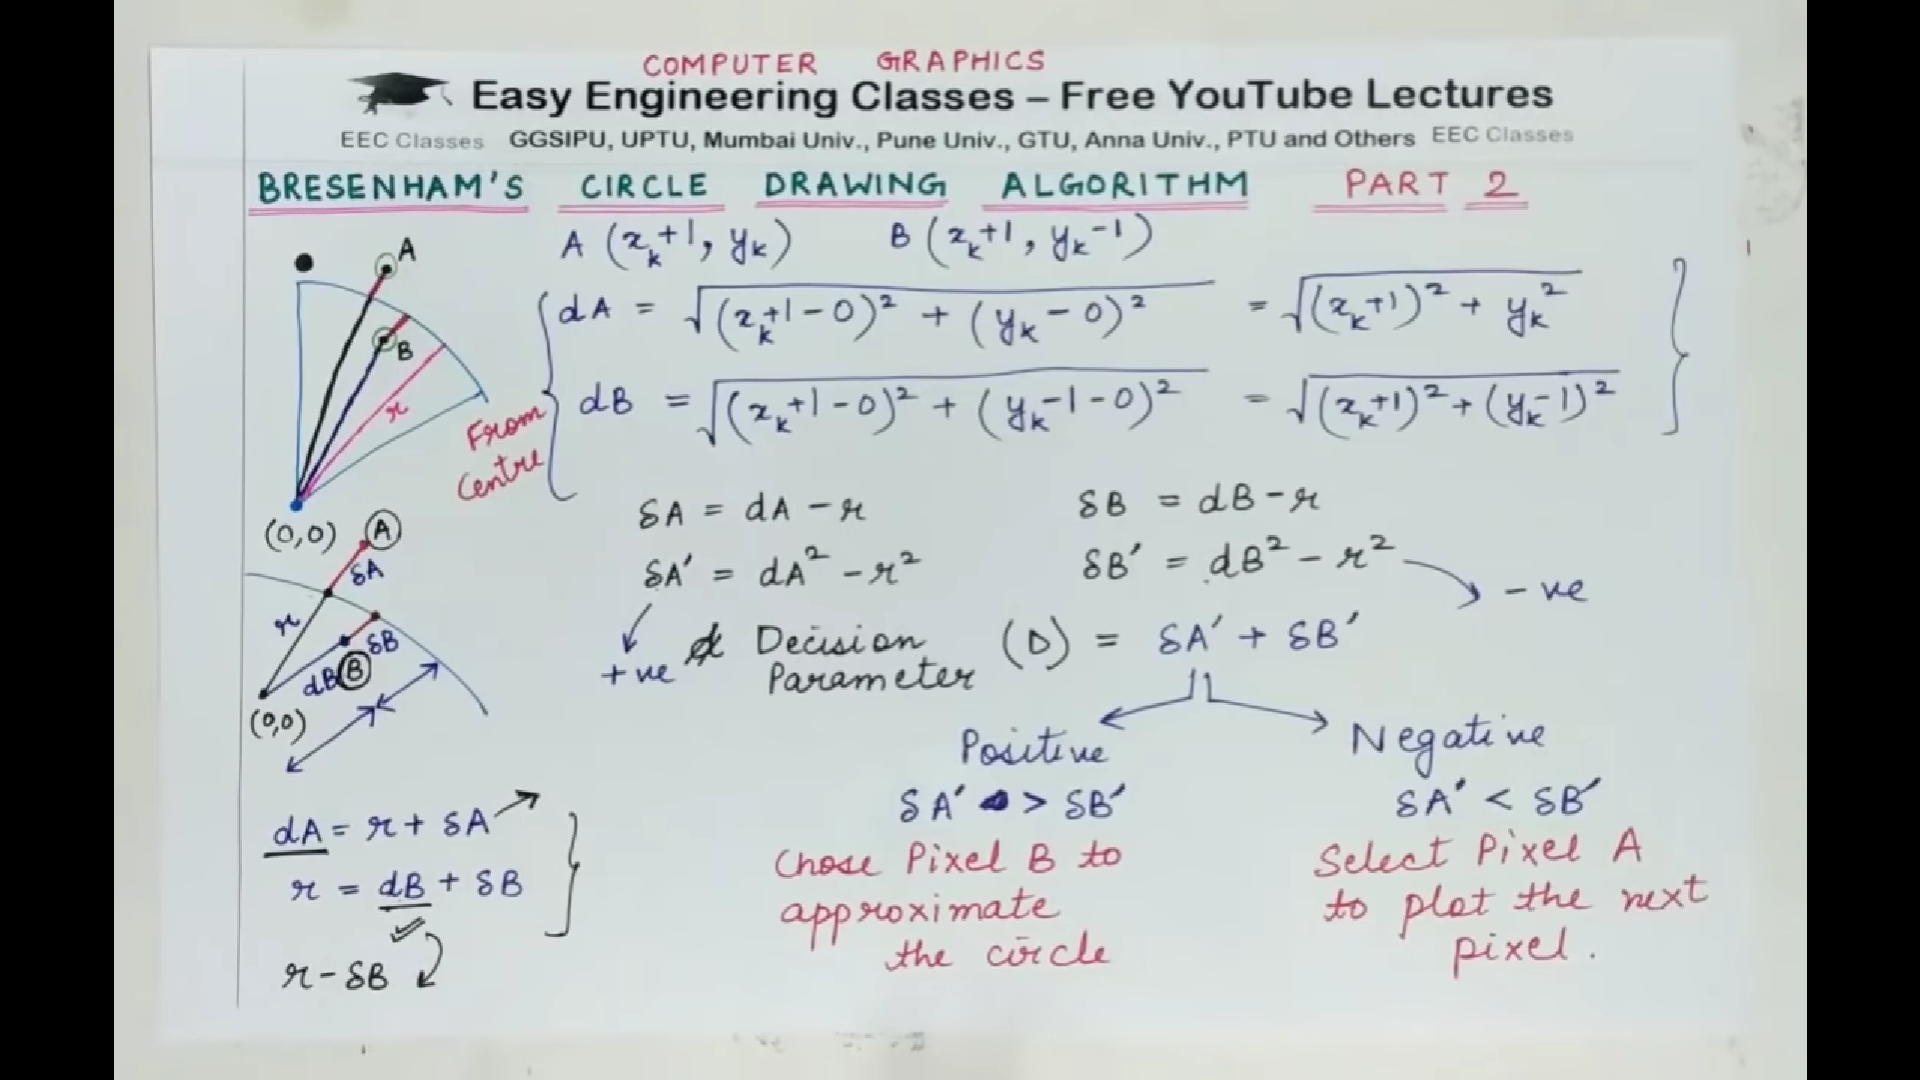 COMPUTER GRAPHICS
Easy Engineering Classes – Free YouTube Lectures
EEC Classes GGSIPU, UPTU, Mumbai Univ., Pune Univ., GTU, Anna Univ., PTU and Others EEC Classes
BRESENHAM'S CIRCLE DRAWING ALGORITHM PART 2
A (xₖ+1, yₖ) B (xₖ+1, yₖ-1)
A
B
r
(0,0)
From
Centre
dA = √((xₖ+1-0)² + (yₖ-0)²) = √((xₖ+1)² + yₖ²)
dB = √((xₖ+1-0)² + (yₖ-1-0)²) = √((xₖ+1)² + (yₖ-1)²)
δA = dA - r δB = dB - r
δA' = dA² - r² δB' = dB² - r² - ve
+ve Decision Parameter (D) = δA' + δB'
A
δA
r
δB
dB B
(0,0)
Positive Negative
δA' > δB' δA' < δB'
Chose Pixel B to
approximate
the circle
Select Pixel A
to plot the next
pixel.
dA = r + δA
r = dB + δB
r - δB